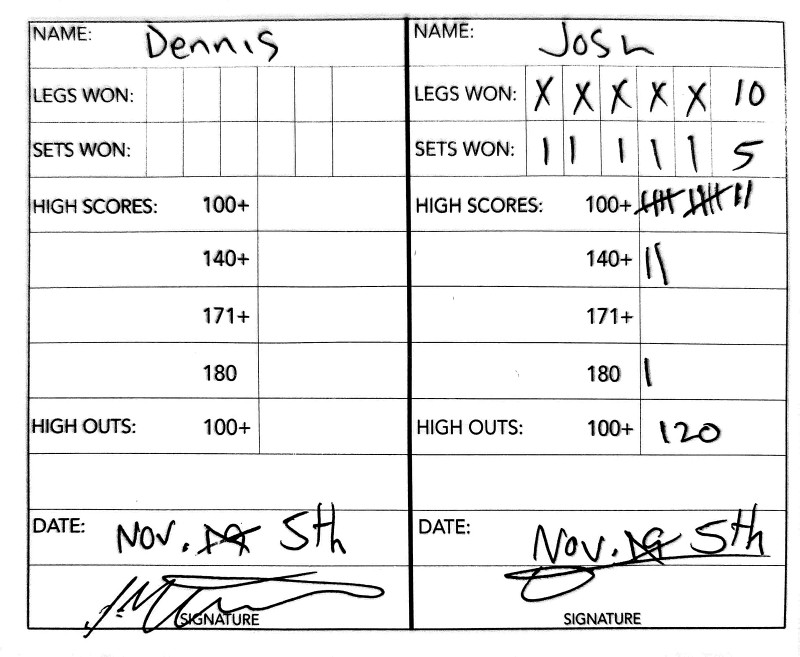 NAME: Dennis
LEGS WON:
SETS WON:
HIGH SCORES: 100+
140+
171+
180
HIGH OUTS: 100+
DATE: Nov. 19 5th
SIGNATURE
NAME: Josh
LEGS WON: X X X X X 10
SETS WON: 1 1 1 1 1 5
HIGH SCORES: 100+ |||| |||| ||
140+ ||
171+
180 |
HIGH OUTS: 100+ 120
DATE: Nov. 19 5th
SIGNATURE